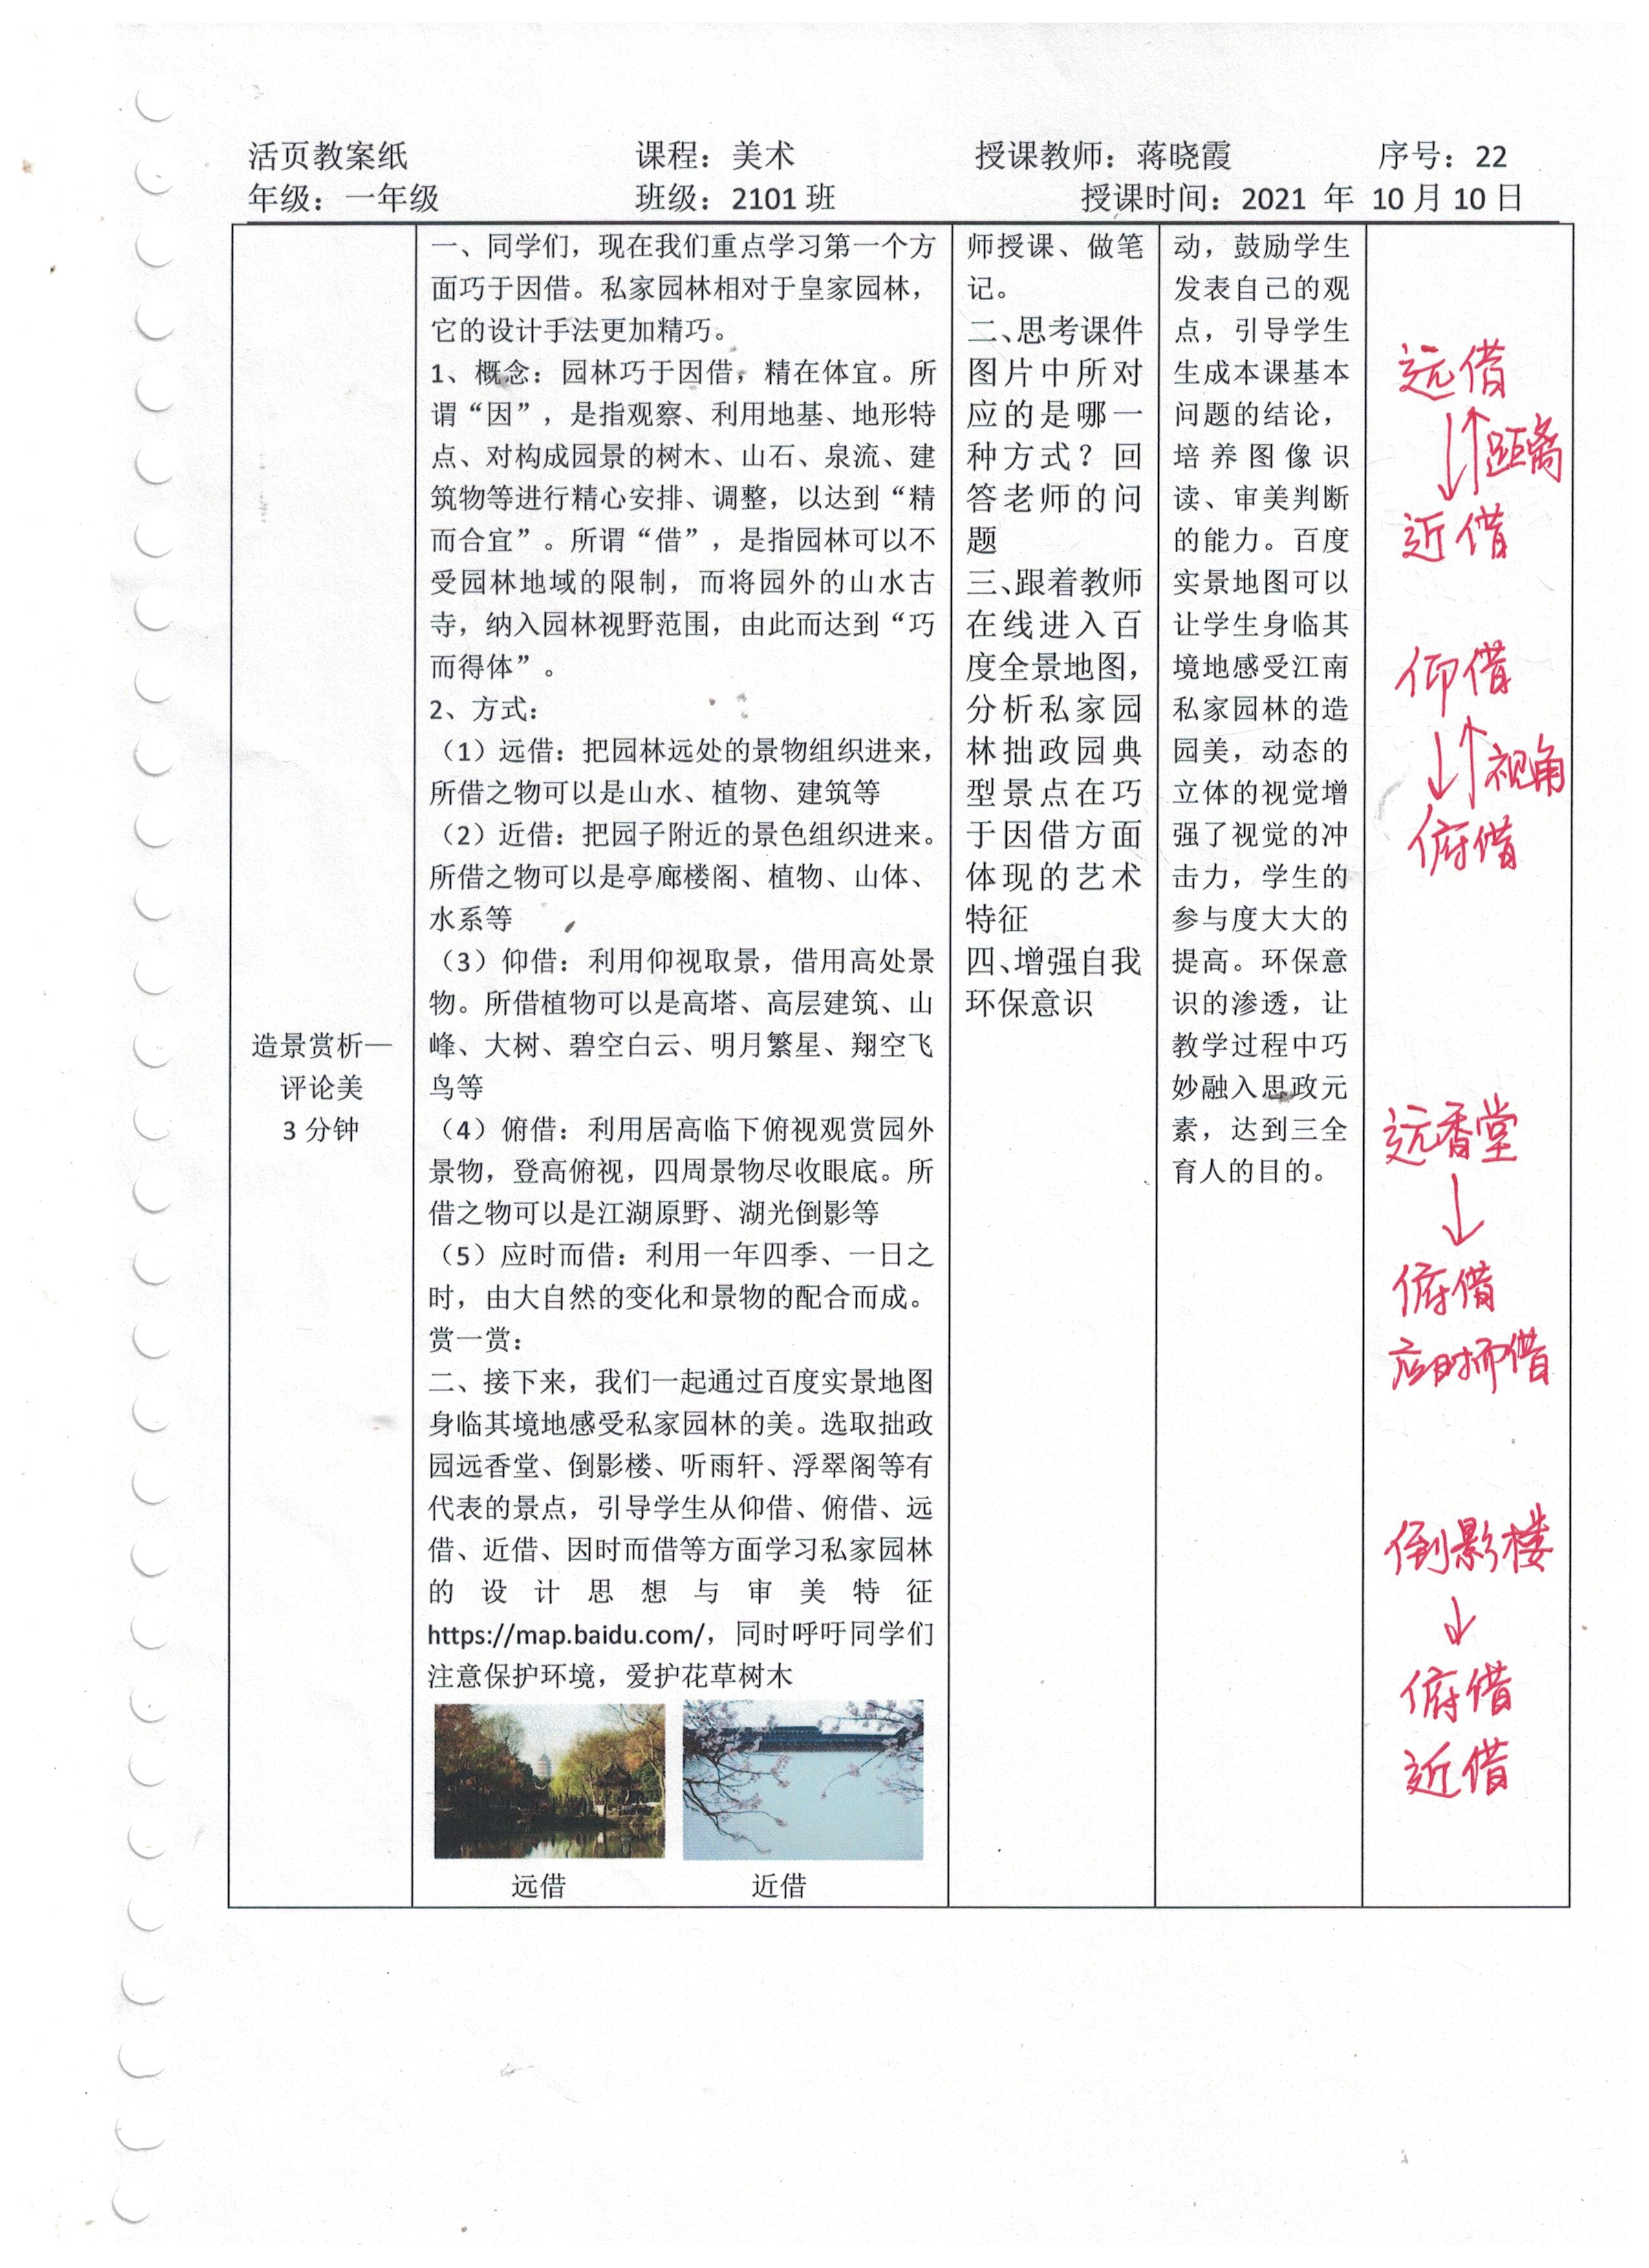 活页教案纸 课程：美术 授课教师：蒋晓霞 序号：22
年级：一年级 班级：2101班 授课时间：2021 年 10月10日
造景赏析—
评论美
3分钟
一、同学们，现在我们重点学习第一个方
面巧于因借。私家园林相对于皇家园林，
它的设计手法更加精巧。
1、概念：园林巧于因借，精在体宜。所
谓“因”，是指观察、利用地基、地形特
点、对构成园景的树木、山石、泉流、建
筑物等进行精心安排、调整，以达到“精
而合宜”。所谓“借”，是指园林可以不
受园林地域的限制，而将园外的山水古
寺，纳入园林视野范围，由此而达到“巧
而得体”。
2、方式：
（1）远借：把园林远处的景物组织进来，
所借之物可以是山水、植物、建筑等
（2）近借：把园子附近的景色组织进来。
所借之物可以是亭廊楼阁、植物、山体、
水系等
（3）仰借：利用仰视取景，借用高处景
物。所借植物可以是高塔、高层建筑、山
峰、大树、碧空白云、明月繁星、翔空飞
鸟等
（4）俯借：利用居高临下俯视观赏园外
景物，登高俯视，四周景物尽收眼底。所
借之物可以是江湖原野、湖光倒影等
（5）应时而借：利用一年四季、一日之
时，由大自然的变化和景物的配合而成。
赏一赏：
二、接下来，我们一起通过百度实景地图
身临其境地感受私家园林的美。选取拙政
园远香堂、倒影楼、听雨轩、浮翠阁等有
代表的景点，引导学生从仰借、俯借、远
借、近借、因时而借等方面学习私家园林
的设计思想与审美特征
https://map.baidu.com/，同时呼吁同学们
注意保护环境，爱护花草树木
远借 近借
师授课、做笔
记。
二、思考课件
图片中所对
应的是哪一
种方式？回
答老师的问
题
三、跟着教师
在线进入百
度全景地图，
分析私家园
林拙政园典
型景点在巧
于因借方面
体现的艺术
特征
四、增强自我
环保意识
动，鼓励学生
发表自己的观
点，引导学生
生成本课基本
问题的结论，
培养图像识
读、审美判断
的能力。百度
实景地图可以
让学生身临其
境地感受江南
私家园林的造
园美，动态的
立体的视觉增
强了视觉的冲
击力，学生的
参与度大大的
提高。环保意
识的渗透，让
教学过程中巧
妙融入思政元
素，达到三全
育人的目的。
远借
↓↑距离
近借
仰借
↓↑视角
俯借
远香堂
↓
俯借
应时而借
倒影楼
↓
俯借
近借